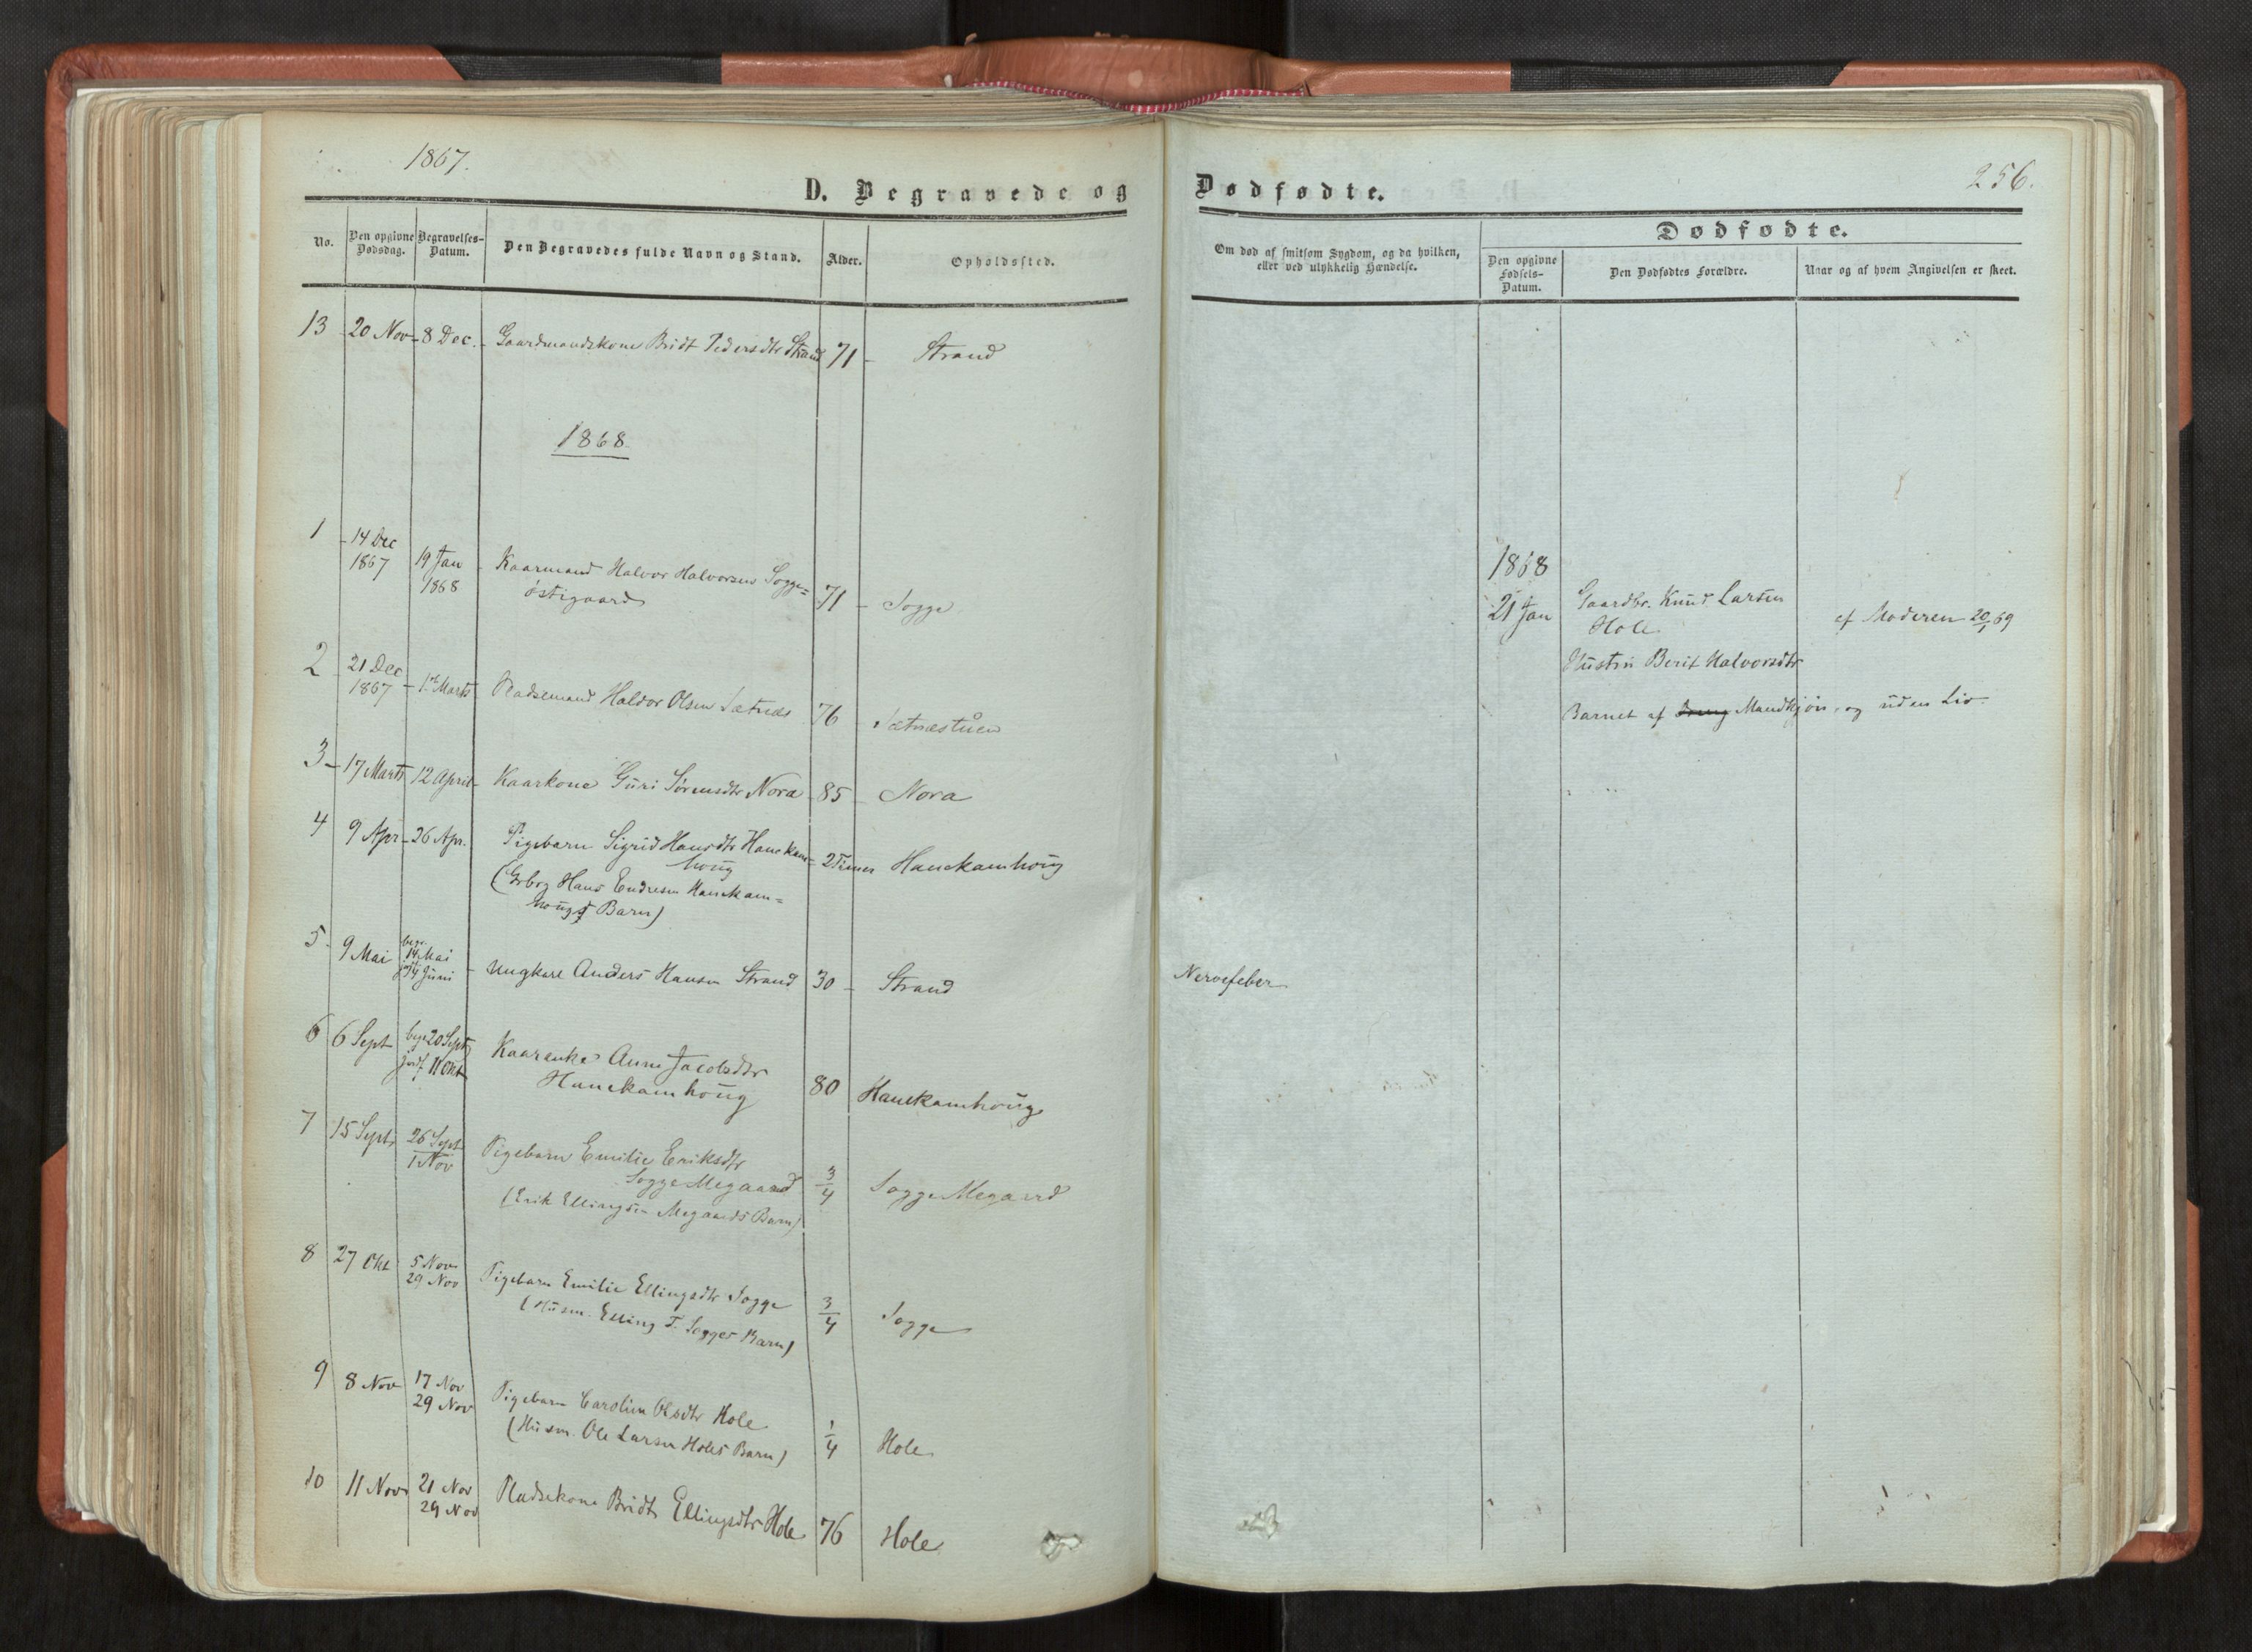 1867.
D. Begravede og
No.
Den opgivne Dødsdag.
Begravelses-Datum.
Den Begravedes fulde Navn og Stand.
Alder.
Opholdssted.
13 20 Nov 8 Dec. Gaardmandskone Bridt Pedersdtr Strand 71 Strand
1868
1 14 Dec 1867 19 Jan 1868 Kaarmand Halvor Halvorsen Sogge=
østigaard 71 Sogge
2 21 Dec 1867 1ste Marts Pladsemand Haldor Olsen Sætnæs 76 Sætnæstuen
3 17 Marts 12 April Kaarkone Guri Sørensdtr Nora 85 Nora
4 9 Apr 26 Apr. Pigebarn Sigrid Hansdtr Hanekam=
houg 2 Timer Hanekamhoug
(Grbrg Hans Endresen Hanekam=
hougs Barn)
5 9 Mai begr. 14 Mai
jordf 14 Juni Ungkarl Anders Hansen Strand 30 Strand
6 6 Sept begr 20 Sept
jordf 11 Okt Kaarenke Anne Jacobsdtr
Hanekamhoug 80 Hanekamhoug
7 15 Sept 26 Sept
1 Nov Pigebarn Emilie Eriksdtr
Sogge Megaard 3/4 Sogge Megaard
(Erik Ellingsen Megaards Barn)
8 27 Okt 5 Nov
29 Nov Pigebarn Emilie Ellingsdtr Sogge 3/4 Sogge
(Husm. Elling T. Sogges Barn)
9 8 Nov 17 Nov
29 Nov Pigebarn Carolina Olsdtr Hole 1/4 Hole
(Husm. Ole Larsen Holes Barn)
10 11 Nov 21 Nov
29 Nov Pladsekone Bridt Ellingsdtr Hole 76 Hole
Dødfødte.
256.
Om død af smitsom Sygdom, og da hvilken,
eller ved ulykkelig Hændelse.
Dødfødte.
Den opgivne Fødsels-Datum.
Den Dødfødtes Forældre.
Naar og af hvem Angivelsen er skeet.
1868
21 Jan Gaardbr. Knud Larsen
Hole af Moderen 20/1 69
Hustru Berit Halvorsdtr
Barnet af Dreng Mandkjøn, og uden Liv.
Nervefeber